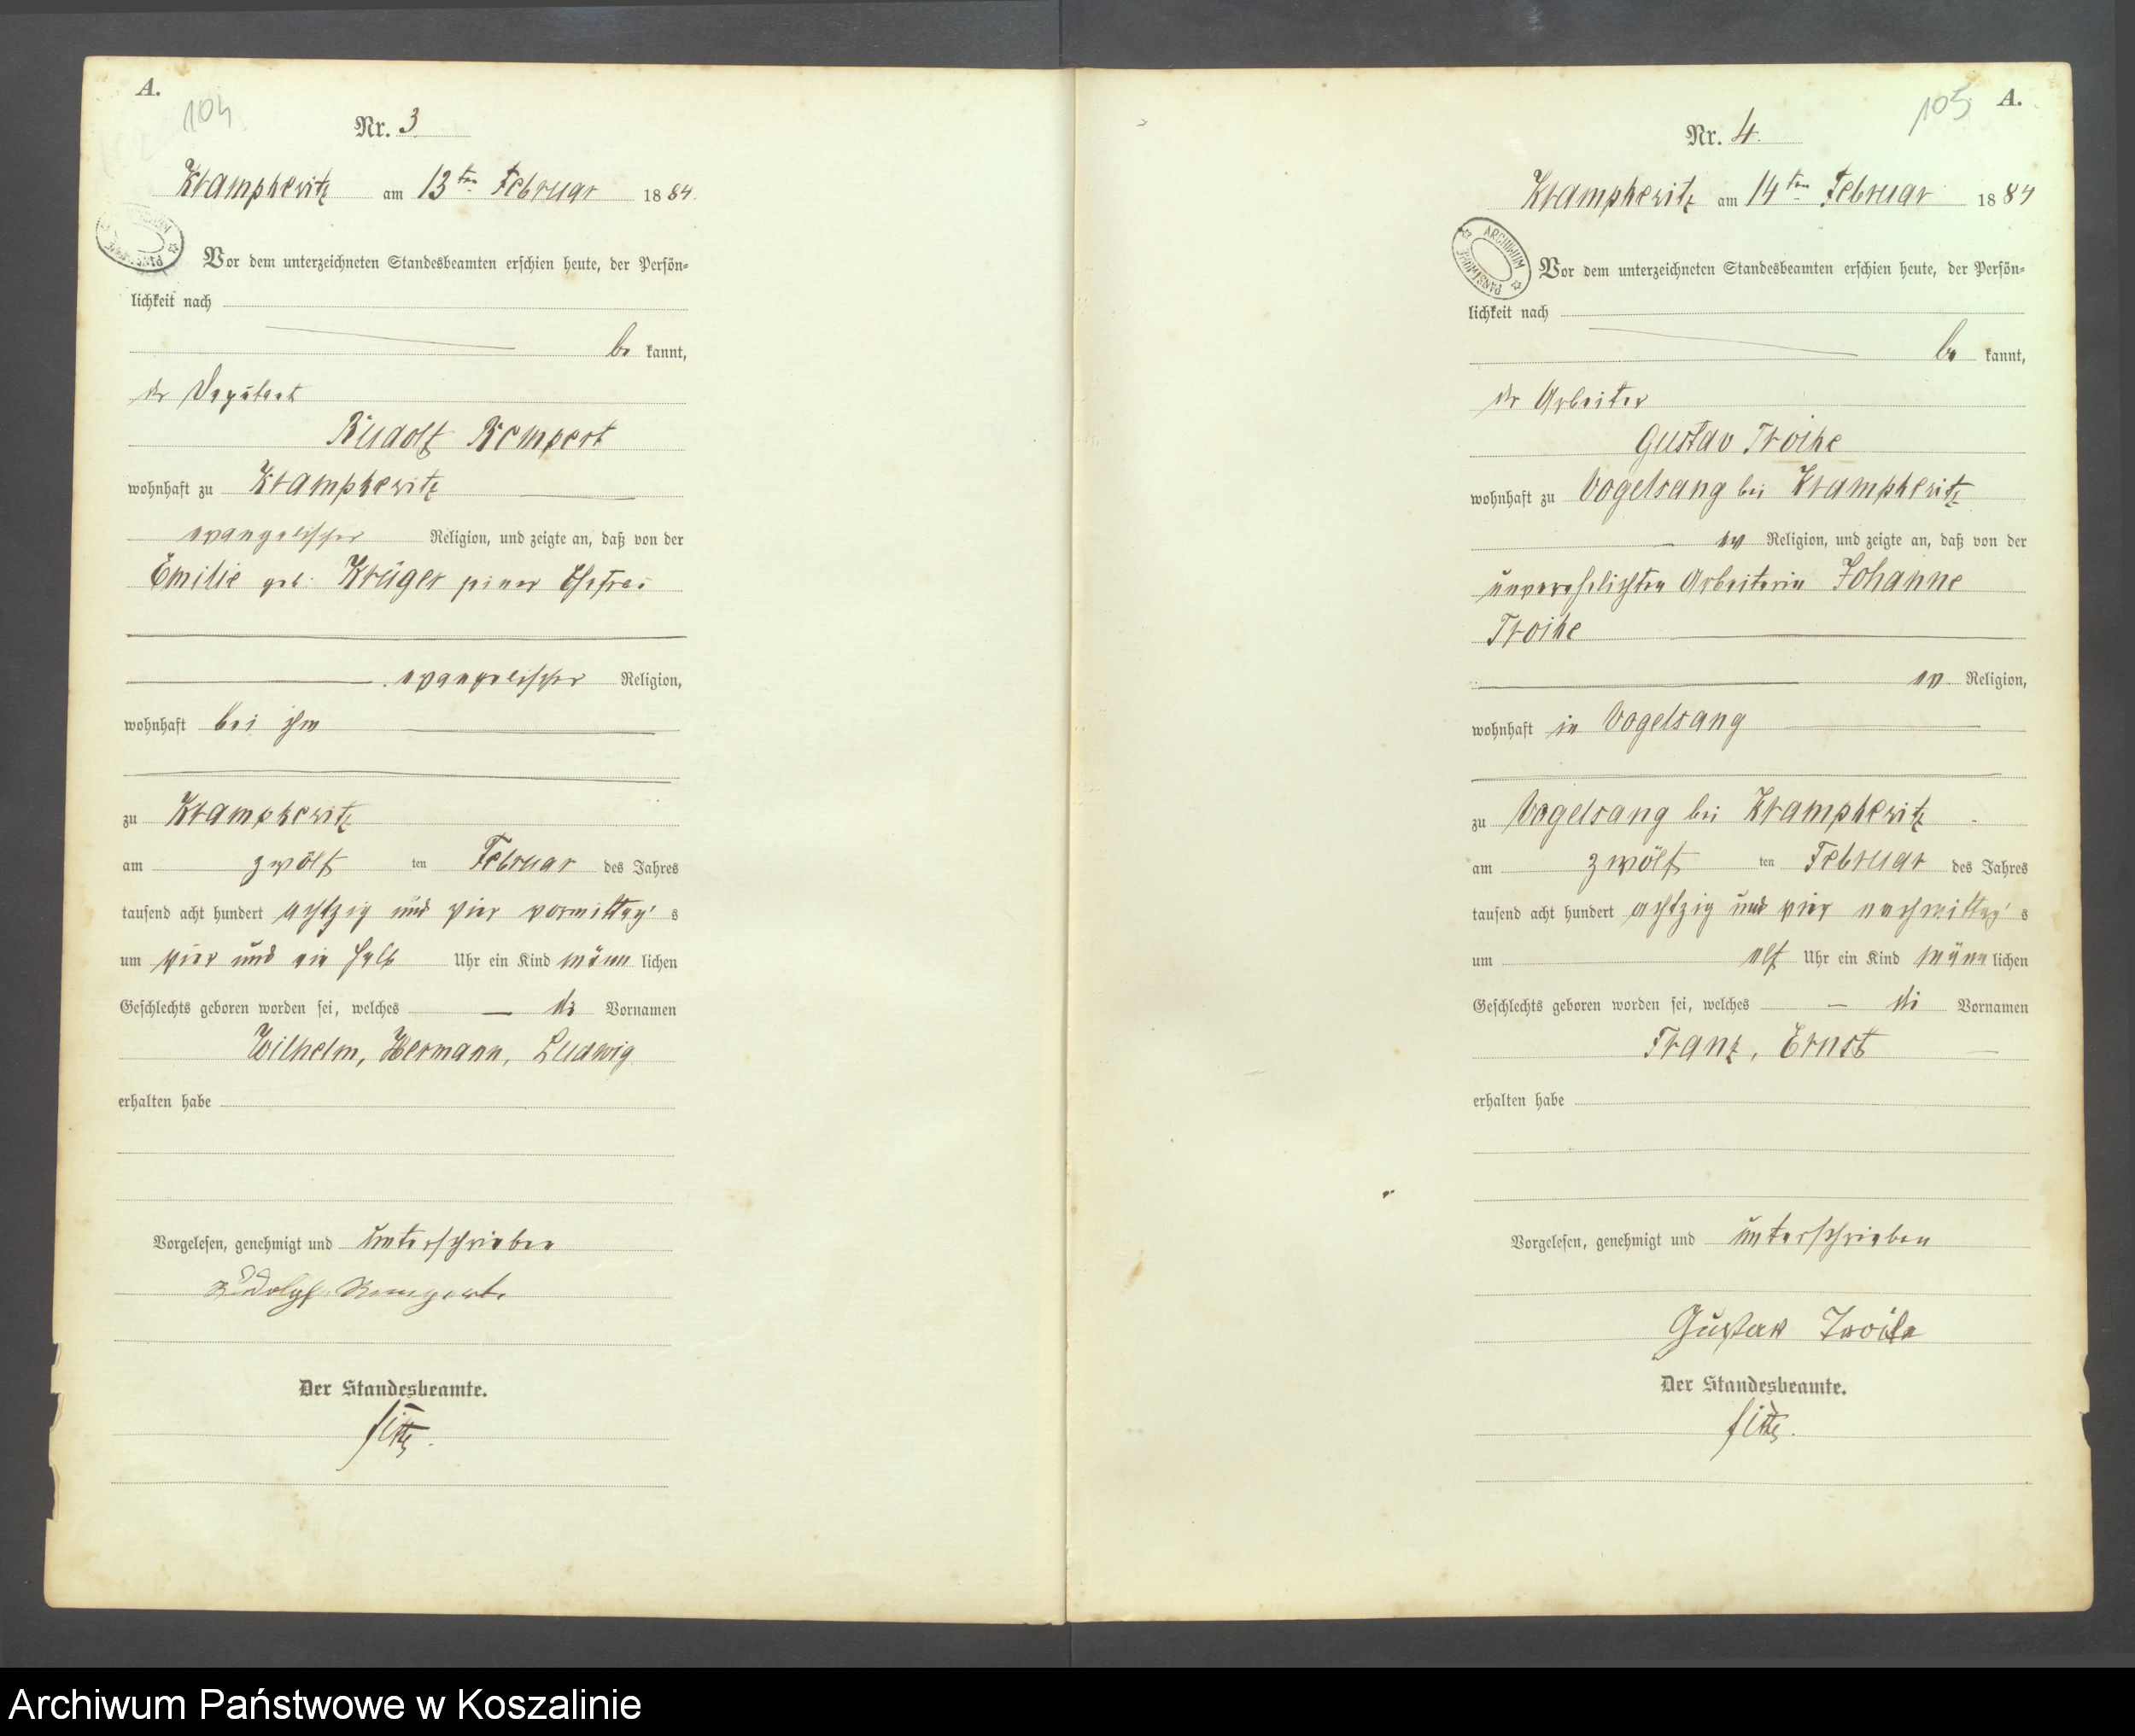 A.
104
Nr. 3
Krampkewitz am 13ten Februar 1884.
Vor dem unterzeichneten Standesbeamten erschien heute, der Persön-
lichkeit nach
be kannt,
der Deputant
Rudolf Rempert
wohnhaft zu Krampkewitz
evangelischer Religion, und zeigte an, daß von der
Emilie geb. Krüger seiner Ehefrau
evangelischer Religion,
wohnhaft bei ihm
zu Krampkewitz
am zwölf ten Februar des Jahres
tausend acht hundert achtzig und vier vormittag's
um vier und ein halb Uhr ein Kind männ lichen
Geschlechts geboren worden sei, welches die Vornamen
Wilhelm, Hermann, Ludwig
erhalten habe
Vorgelesen, genehmigt und unterschrieben
Rudolf Rempert
Der Standesbeamte.
A.
105
Nr. 4.
Krampkewitz am 14ten Februar 1884
ARCHIWUM PAŃSTWOWE
Vor dem unterzeichneten Standesbeamten erschien heute, der Persön-
lichkeit nach
be kannt,
der Arbeiter
Gustav Troike
wohnhaft zu Vogelsang bei Krampkewitz
ev Religion, und zeigte an, daß von der
unverehelichten Arbeiterin Johanne
Troike
ev Religion,
wohnhaft in Vogelsang
zu Vogelsang bei Krampkewitz
am zwölf ten Februar des Jahres
tausend acht hundert achtzig und vier nachmittag's
um elf Uhr ein Kind männ lichen
Geschlechts geboren worden sei, welches die Vornamen
Franz, Ernst
erhalten habe
Vorgelesen, genehmigt und unterschrieben
Gustav Troike
Der Standesbeamte.
Archiwum Państwowe w Koszalinie